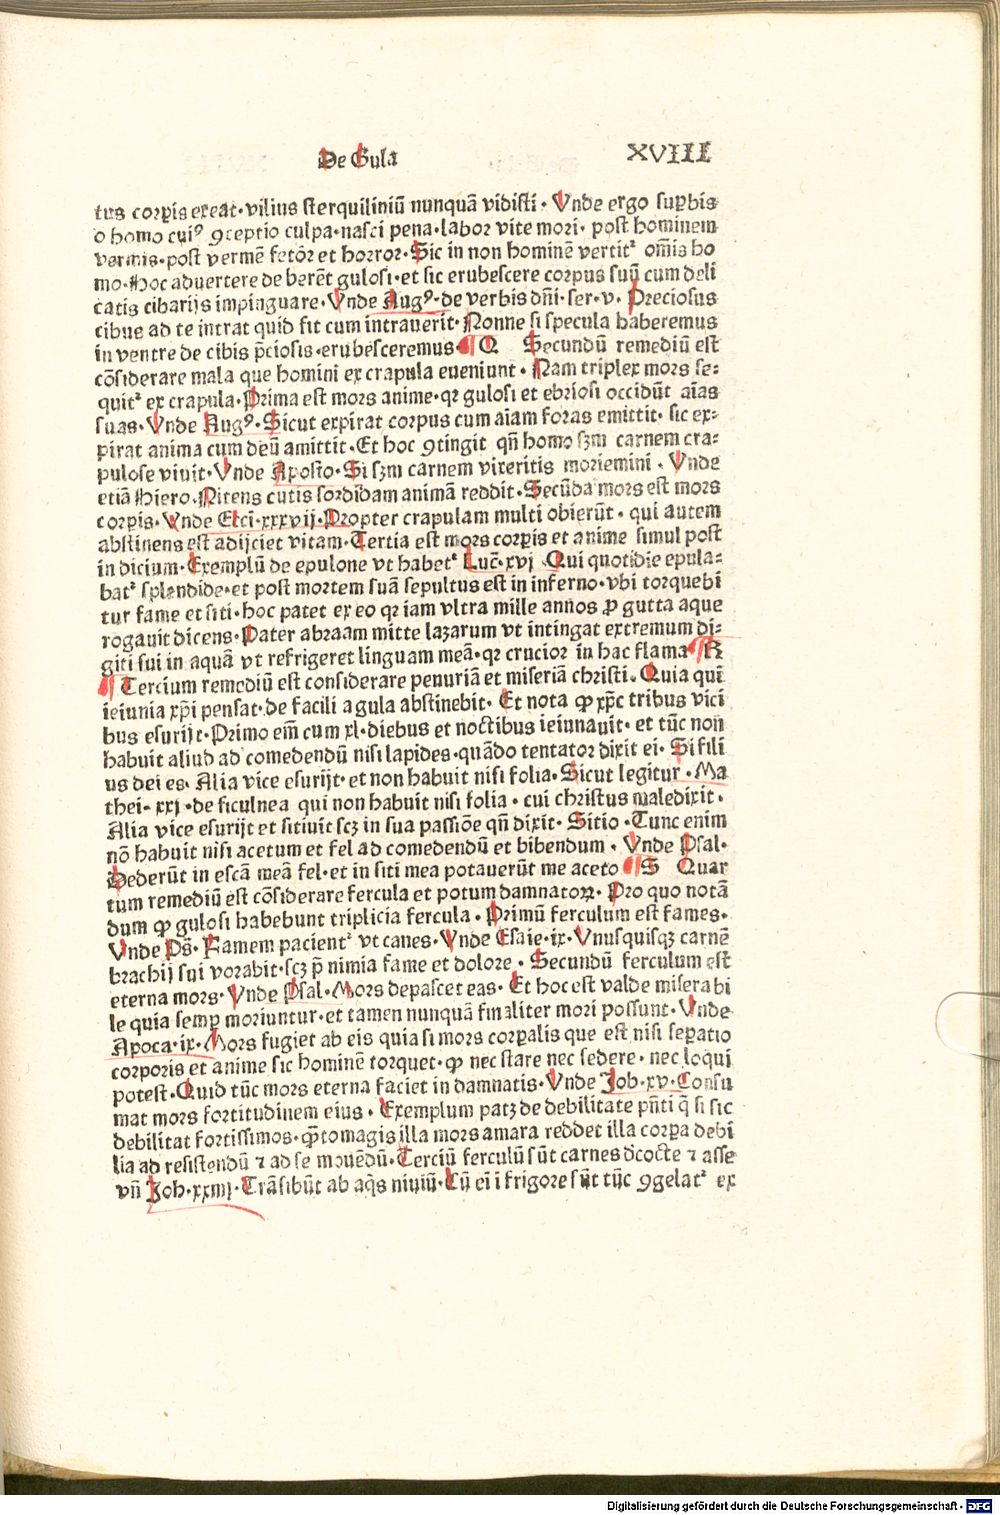 De Gula
XVIII
tus corꝑis exeat· vilius sterquiliniū nunquā vidisti· Vnde ergo suꝑbis
o homo cuiꝰ ꝯceptio culpa· nasci pena· labor vite mori· post hominem
vermis· post vermē fetōr et horror· Sic in non hominē vertitᵗ om̄is ho
mo· Hoc aduertere deberēt gulosi· et sic erubescere corpus suū cum deli
catis cibarijs impinguare· Vnde Augꝰ· de verbis dn̄i· ser· v· Preciosus
cibus ad te intrat quid fit cum intrauerit· Nonne si specula haberemus
in ventre de cibis p̄ciosis· erubesceremus ¶ Q Secundū remediū est
cōsiderare mala que homini ex crapula eueniunt· Nam triplex mors se⸗
quitᵗ ex crapula· Prima est mors anime· qꝛ gulosi et ebriosi occidūt aīas
suas· Vnde Augꝰ· Sicut expirat corpus cum aīam foras emittit· sic ex⸗
pirat anima cum deū amittit· Et hoc ꝯtingit qn̄ homo sꝫm carnem cra⸗
pulose viuit· Vnde Aposto· Si sꝫm carnem vixeritis moriemini· Vnde
etiā Hiero· Nitens cutis sordidam animā reddit· Secūda mors est mors
corꝑis· Vnde Etci· xxxvij· Propter crapulam multi obierūt· qui autem
abstinens est adijciet vitam· Tertia est mors corꝑis et anime simul post
indicium· Exemplū de epulone vt habetᵗ Luc̄· xvj Qui quotidie epula⸗
batᵗ splendide· et post mortem suā sepultus est in inferno· vbi torquebi
tur fame et siti· hoc patet ex eo qꝛ iam vltra mille annos ꝓ gutta aque
rogauit dicens· Pater abraam mitte lazarum vt intingat extremum di⸗
giti sui in aquā vt refrigeret linguam meā· qꝛ crucior in hac flama ¶ R
¶ Tercium remediū est considerare penuriā et miseriā christi· Quia qui
ieiunia xp̄i pensat· de facili a gula abstinebit· Et nota ꝙ xp̄c tribus vici
bus esurijt· Primo em̄ cum xl· diebus et noctibus ieiunauit· et tūc non
habuit aliud ad comedendū nisi lapides· quādo tentator dixit ei· Si fili
us dei es· Alia vice esurijt· et non habuit nisi folia· Sicut legitur· Ma
thei· xxj· de ficulnea qui non habuit nisi folia· cui christus maledixit·
Alia vice esurijt et sitiuit scꝫ in sua passiōe qn̄ dixit· Sitio· Tunc enim
nō habuit nisi acetum et fel ad comedendū et bibendum· Vnde Psal·
Dederūt in escā meā fel· et in siti mea potauerūt me aceto ¶ S Quar
tum remediū est cōsiderare fercula et potum damnatoꝝ· Pro quo notā
dum ꝙ gulosi habebunt triplicia fercula· Primū ferculum est fames·
Vnde Ps̄· Famem pacientᵗ vt canes· Vnde Esaie· ix· Vnusquisqꝫ carnē
brachij sui vorabit· scꝫ p̄ nimia fame et dolore· Secundū ferculum est
eterna mors· Vnde Psal· Mors depascet eas· Et hoc est valde miserabi
le quia semꝑ moriuntur· et tamen nunquā finaliter mori possunt· Vnde
Apoca· ix· Mors fugiet ab eis quia si mors corꝑalis que est nisi seꝑatio
corporis et anime sic hominē torquet· ꝙ nec stare nec sedere· nec loqui
potest· Quid tūc mors eterna faciet in damnatis· Vnde Job· xv· Consu
mat mors fortitudinem eius· Exemplum patꝫ de debilitate pn̄ti q̄ si sic
debilitat fortissimos· ꝙ̄to magis illa mors amara reddet illa corꝑa debi
lia ad resistendū ⁊ ad se mouēdū· Terciū ferculū sūt carnes dcocte ⁊ asse
vn̄ Job· xxiiij· Trāsibūt ab aq̄s niuiū· Cū ei i frigore sūt tūc ꝯgelatᵗ ex
Digitalisierung gefördert durch die Deutsche Forschungsgemeinschaft - DFG